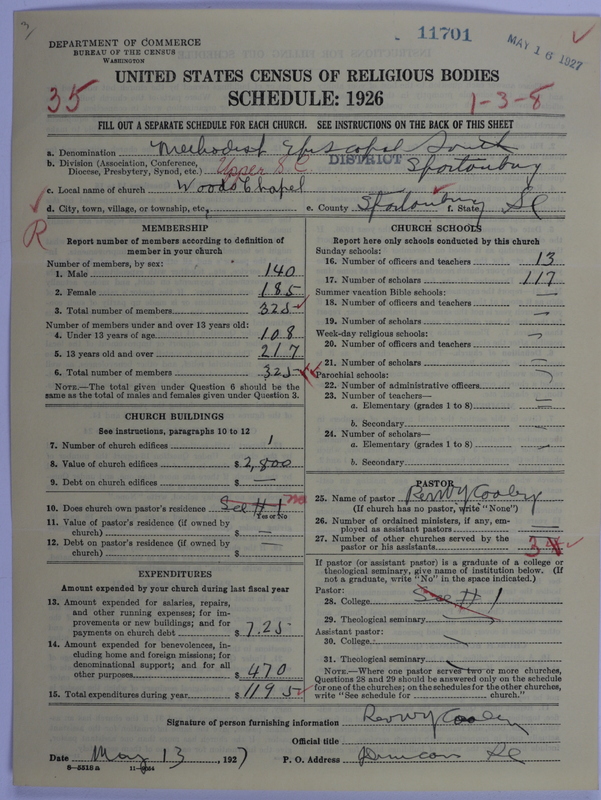 11701
MAY 16 1927
DEPARTMENT OF COMMERCE
BUREAU OF THE CENSUS
WASHINGTON
UNITED STATES CENSUS OF RELIGIOUS BODIES
35
SCHEDULE: 1926
1-3-8
FILL OUT A SEPARATE SCHEDULE FOR EACH CHURCH. SEE INSTRUCTIONS ON THE BACK OF THIS SHEET
a. Denomination Methodist Episcopal South
b. Division (Association, Conference, Diocese, Presbytery, Synod, etc.) Upper S.C. DISTRICT Spartanburg
c. Local name of church Woods Chapel
d. City, town, village, or township, etc. e. County Spartanburg f. State SC
R
MEMBERSHIP
Report number of members according to definition of member in your church
Number of members, by sex:
1. Male 140
2. Female 185
3. Total number of members 325
Number of members under and over 13 years old:
4. Under 13 years of age 108
5. 13 years old and over 217
6. Total number of members 325
NOTE.—The total given under Question 6 should be the same as the total of males and females given under Question 3.
CHURCH BUILDINGS
See instructions, paragraphs 10 to 12
7. Number of church edifices 1
8. Value of church edifices $ 2,800
9. Debt on church edifices $ —
10. Does church own pastor's residence See #1 no
Yes or No
11. Value of pastor's residence (if owned by church) $ —
12. Debt on pastor's residence (if owned by church) $ —
EXPENDITURES
Amount expended by your church during last fiscal year
13. Amount expended for salaries, repairs, and other running expenses; for improvements or new buildings; and for payments on church debt $ 725
14. Amount expended for benevolences, including home and foreign missions; for denominational support; and for all other purposes $ 470
15. Total expenditures during year $ 1195
CHURCH SCHOOLS
Report here only schools conducted by this church
Sunday schools:
16. Number of officers and teachers 13
17. Number of scholars 117
Summer vacation Bible schools:
18. Number of officers and teachers —
19. Number of scholars —
Week-day religious schools:
20. Number of officers and teachers —
21. Number of scholars —
Parochial schools:
22. Number of administrative officers —
23. Number of teachers—
a. Elementary (grades 1 to 8) —
b. Secondary
24. Number of scholars—
a. Elementary (grades 1 to 8) —
b. Secondary
PASTOR
25. Name of pastor Rev W Y Cooley
(If church has no pastor, write "None")
26. Number of ordained ministers, if any, employed as assistant pastors —
27. Number of other churches served by the pastor or his assistants 3
If pastor (or assistant pastor) is a graduate of a college or theological seminary, give name of institution below. (If not a graduate, write "No" in the space indicated.)
Pastor:
28. College See #1
29. Theological seminary
Assistant pastor:
30. College
31. Theological seminary
NOTE.—Where one pastor served two or more churches, Questions 28 and 29 should be answered only on the schedule for one of the churches; on the schedules for the other churches, write "See schedule for church."
Signature of person furnishing information Rev W Y Cooley
Official title
Date May 13, 1927 P. O. Address Duncan SC
8—5516 a